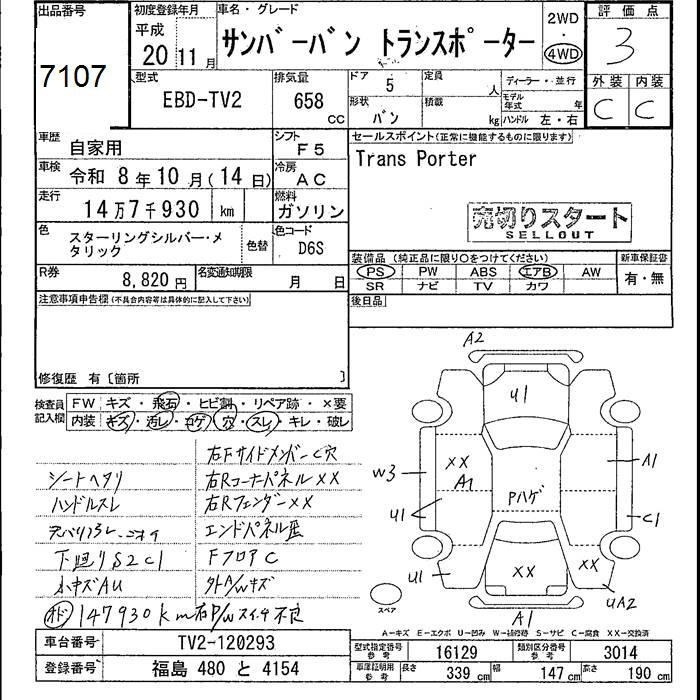 出品番号
7107
初度登録年月
平成
20 11 月
車名・グレード
サンバーバン トランスポーター
2WD
・
4WD
評価点
3
型式
EBD-TV2
排気量
658 cc
ドア
5
定員
人
ディーラー・並行
形状
バン
積載
kg
モデル年式
年
ハンドル 左・右
外装 内装
C C
車歴
自家用
シフト
F5
セールスポイント(正常に機能するものに限ります)
Trans Porter
車検
令和 8 年 10 月 ( 14 日)
冷房
AC
走行
14万7千930 km
燃料
ガソリン
売切りスタート
SELLOUT
色
スターリングシルバー・メタリック
色替
色コード
D6S
装備品 (純正品に限り○をつけてください)
新車保証書
PS PW ABS エアB AW
有・無
R券
8,820 円
名変通知期限
月 日
SR ナビ TV カワ
注意事項申告欄(不具合内容等は具体的に記入して下さい)
後日品
修復歴 有〔箇所 〕
検査員記入欄
FW キズ・飛石・ヒビ割・リペア跡・×要
内装 キズ・汚レ・コゲ・穴・スレ・キレ・破レ
右Fサイドメンバー C穴
シートヘタリ
右Rコーナーパネル XX
ハンドルスレ
右Rフェンダー XX
エンドパネル歪
下廻りS2C1
FフロアC
小キズAU
外A/Wキズ
オド 147930km
右P/Wスイッチ不良
A2
U1
W3
XX
A1
Pハゲ
A1
U1
C1
U1
XX
XX
UA2
A1
スペア
A-キズ E-エクボ U-凹み W-補修跡 S-サビ C-腐食 XX-交換済
車台番号
TV2-120293
型式指定番号 参考
16129
類別区分番号 参考
3014
登録番号
福島 480 と 4154
車庫証明用 参考
長さ 339 cm
幅 147 cm
高さ 190 cm